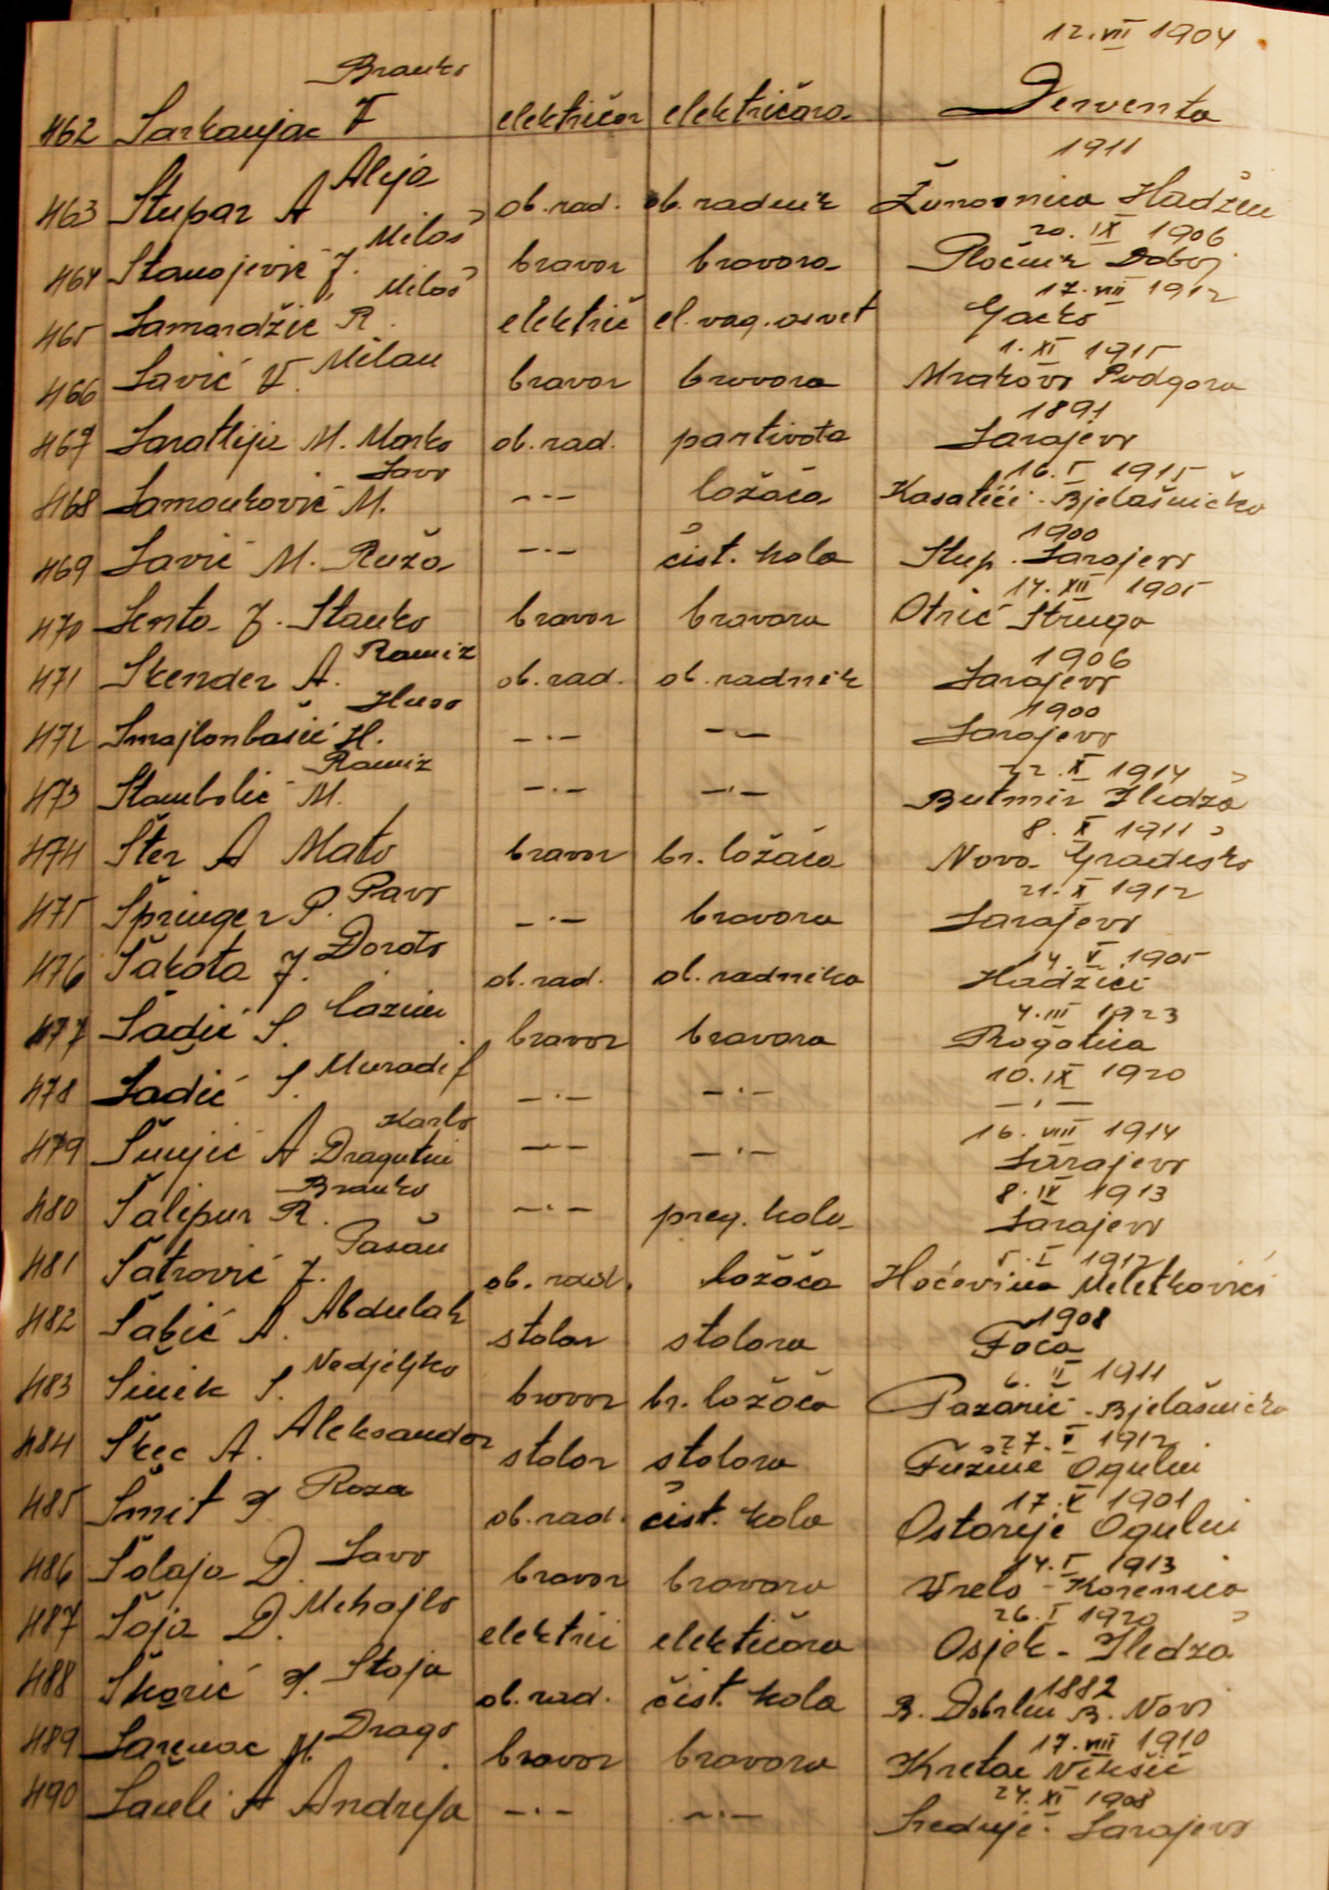 12. VII 1904
462 Sarkanjac V Branko električar električara Derventa
1911
463 Stupar A Alija ob. rad. ob. radnik Žunovnica Hadžići
20. IX 1906
464 Stanojević J. Miloš bravar bravara Pločnik Doboj
17. VII 1912
465 Samardžić R. Miloš električ el. vag. osvet Gacko
1. XI 1915
466 Savić V. Milan bravar bravara Mrakovo Podgora
1891
467 Saratlija M. Marko ob. rad. partivođa Sarajevo
16. I 1915
468 Samouković M. Savo -·- ložača Kasatići - Bjelašničko
1900
469 Savić M. Ruža -·- čist. kola Stup. Sarajevo
14. XII 1905
470 Senta J. Stanko bravar bravara Otrić Struga
1906
471 Skender A. Ramiz ob. rad. ob. radnik Sarajevo
1900
472 Smajlonbašić H. Huso -·- -- Sarajevo
22. X 1914
473 Stambolić M. Ramiz -·- -·- Butmir Ilidža
8. X 1911
474 Šter A Mato bravar br. ložača Nova Gradiška
21. X 1912
475 Špringer P. Pavo -·- bravara Sarajevo
14. V 1905
476 Šakota J. Đorđo ob. rad. ob. radnika Hadžići
4. III 1923
477 Šadić S. Ćazim bravar bravara Rogatica
10. IX 1920
478 Šadić S. Muradif -·- -·- -·-
16. VIII 1914
479 Šunjić A. Karlo Dragutin -- -·- Sarajevo
8. IV 1913
480 Šalipur R. Branko -·- preg. kola Sarajevo
5. I 1912
481 Šatrović J. Pašan ob. rad. ložača Hoćevina Meletkovići
1908
482 Šabić A. Abdulah stolar stolara Foča
6. II 1911
483 Šinik S. Nedjeljko bravar br. ložača Pazarić - Bjelašničko
27. V 1912
484 Škec A. Aleksandar stolar stolara Fužine Ogulin
17. X 1901
485 Šmit Roza ob. rad. čist. kola Ostarije Ogulin
14. I 1913
486 Šolaja D. Savo bravar bravara Vrelo - Korenica
26. I 1920
487 Šoja D. Mihajlo električ elektičara Osjek - Ilidža
1882
488 Škorić Stoja ob. rad. čist. kola B. Dobrlin B. Novi
17. VIII 1910
489 Šarenac M. Drago bravar bravara Kretac Nikšić
24. XI 1908
490 Šauli A Andrija -·- -·- Srednje - Sarajevo